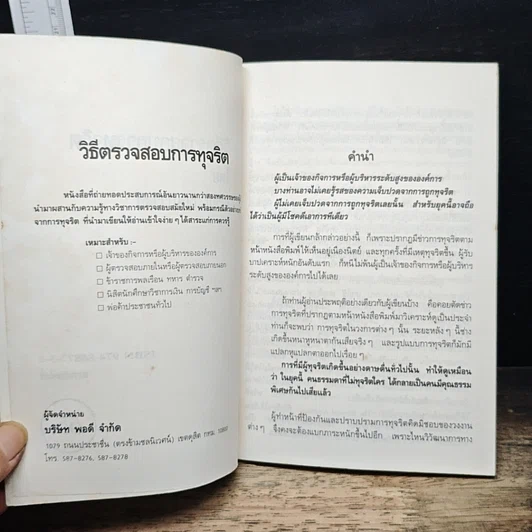 วิธีตรวจสอบการทุจริต
หนังสือที่ถ่ายทอดประสบการณ์อันยาวนานกว่าสองทศวรรษของผู้
นำมาผสานกับความรู้ทางวิชาการตรวจสอบสมัยใหม่ พร้อมกรณีตัวอย่าง
จากการทุจริต ที่นำมาเขียนให้อ่านเข้าใจง่าย ๆ ได้สาระแก่การควร
เหมาะสำหรับ :-
□ เจ้าของกิจการหรือผู้บริหารขององค์การ
□ ผู้ตรวจสอบภายในหรือผู้ตรวจสอบภายนอก
□ ข้าราชการพลเรือน ทหาร ตำรวจ
□ นิสิตนักศึกษาวิชาการเงิน การบัญชี ฯลฯ
□ พ่อค้าประชาชนทั่วไป
ผู้จัดจำหน่าย
บริษัท พอดี จำกัด
1079 ถนนประชาชื่น (ตรงข้ามชลนิเวศน์) เขตดุสิต กทม.
โทร. 587-8276, 587-8278
คำนำ
ผู้เป็นเจ้าของกิจการหรือผู้บริหารระดับสูงขององค์การ
บางท่านอาจไม่เคยรู้รสของความเจ็บปวดจากการถูกทุจริต
ผู้ไม่เคยเจ็บปวดจากการถูกทุจริตเลยนั้น สำหรับยุคนี้อาจถือ
ได้ว่าเป็นผู้มีโชคดีเอาการทีเดียว
การที่ผู้เขียนกล้ากล่าวอย่างนี้ ก็เพราะปรากฏมีข่าวการทุจริตตาม
หน้าหนังสือพิมพ์ให้เห็นอยู่เนืองนิตย์ และทุกครั้งที่มีเหตุทุจริตขึ้น ผู้รับ
บาปเคราะห์หนักอันดับแรก ก็หนีไม่พ้นผู้เป็นเจ้าของกิจการหรือผู้บริหาร
ระดับสูงขององค์การไปได้เลย
ถ้าท่านผู้อ่านประพฤติอย่างเดียวกับผู้เขียนบ้าง คือคอยตัดข่าว
การทุจริตที่ปรากฏตามหน้าหนังสือพิมพ์มาวิเคราะห์ดูเป็นประจำ
ท่านก็จะพบว่า การทุจริตในวงการต่าง ๆ นั้น ระยะหลัง ๆ นี้ช่าง
เกิดขึ้นหนาหูหนาตากันเสียจริง ๆ และรูปแบบการทุจริตก็มักมี
แปลกหูแปลกตาออกไปเรื่อย ๆ
การที่มีผู้ทุจริตเกิดขึ้นอย่างดาษดื่นทั่วไปนั้น ทำให้ดูเหมือน
ว่า ในยุคนี้ คนธรรมดาที่ไม่ทุจริตใคร ได้กลายเป็นคนมีคุณธรรม
พิเศษกันไปเสียแล้ว
ผู้ทำหน้าที่ป้องกันและปราบปรามการทุจริตคิดมิชอบของวงงาน
ต่าง ๆ จึงคงจะต้องแบกภาระหนักขึ้นไปอีก เพราะไหนวิวัฒนาการทาง